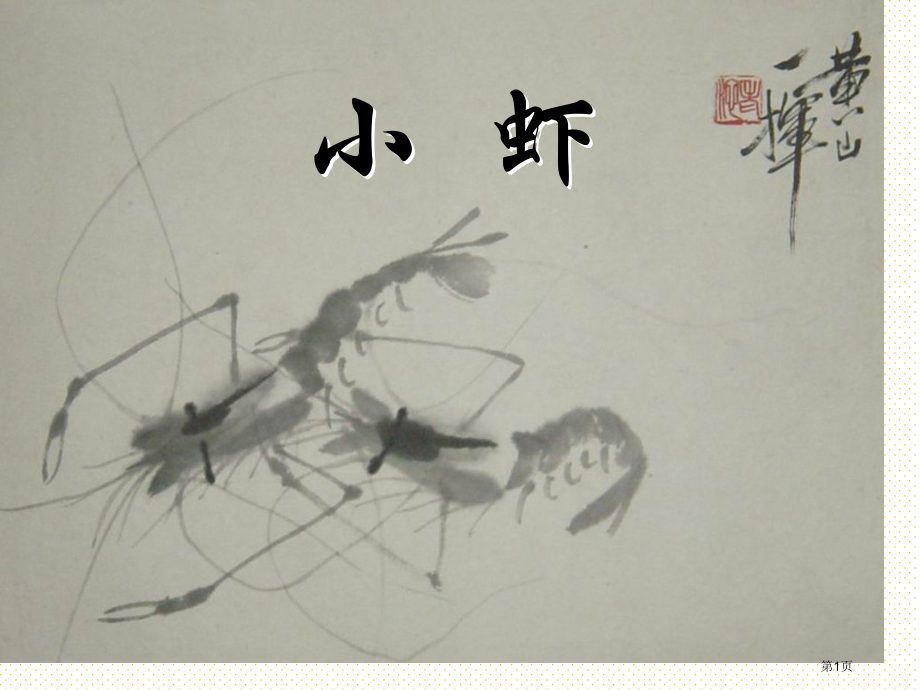 小 虾
黄山
一挥
第1页